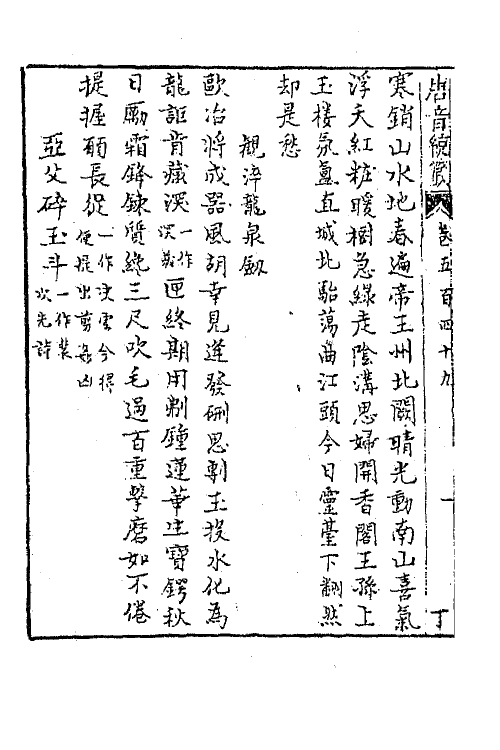 唐音統籤 卷五百四十九 一 丁
寒銷山水地春遍帝王州北闕晴光動南山喜氣
浮夭紅粧暖樹急綠走陰溝思婦開香閣王孫上
玉樓氛氳直城北駘蕩曲江頭今日靈臺下翻然
却是愁
觀淬龍泉劍
歐冶將成器風胡幸見逢發硎思剸玉投水化為
龍詎肯藏深一作深藏匣終期用刜鐘蓮華生寶鍔秋
日勵霜鋒鍊質纔三尺吹毛過百重擊磨如不倦
提握願長從一作決雲今得便提出剪姦凶
亞父碎玉斗一作裴次元詩